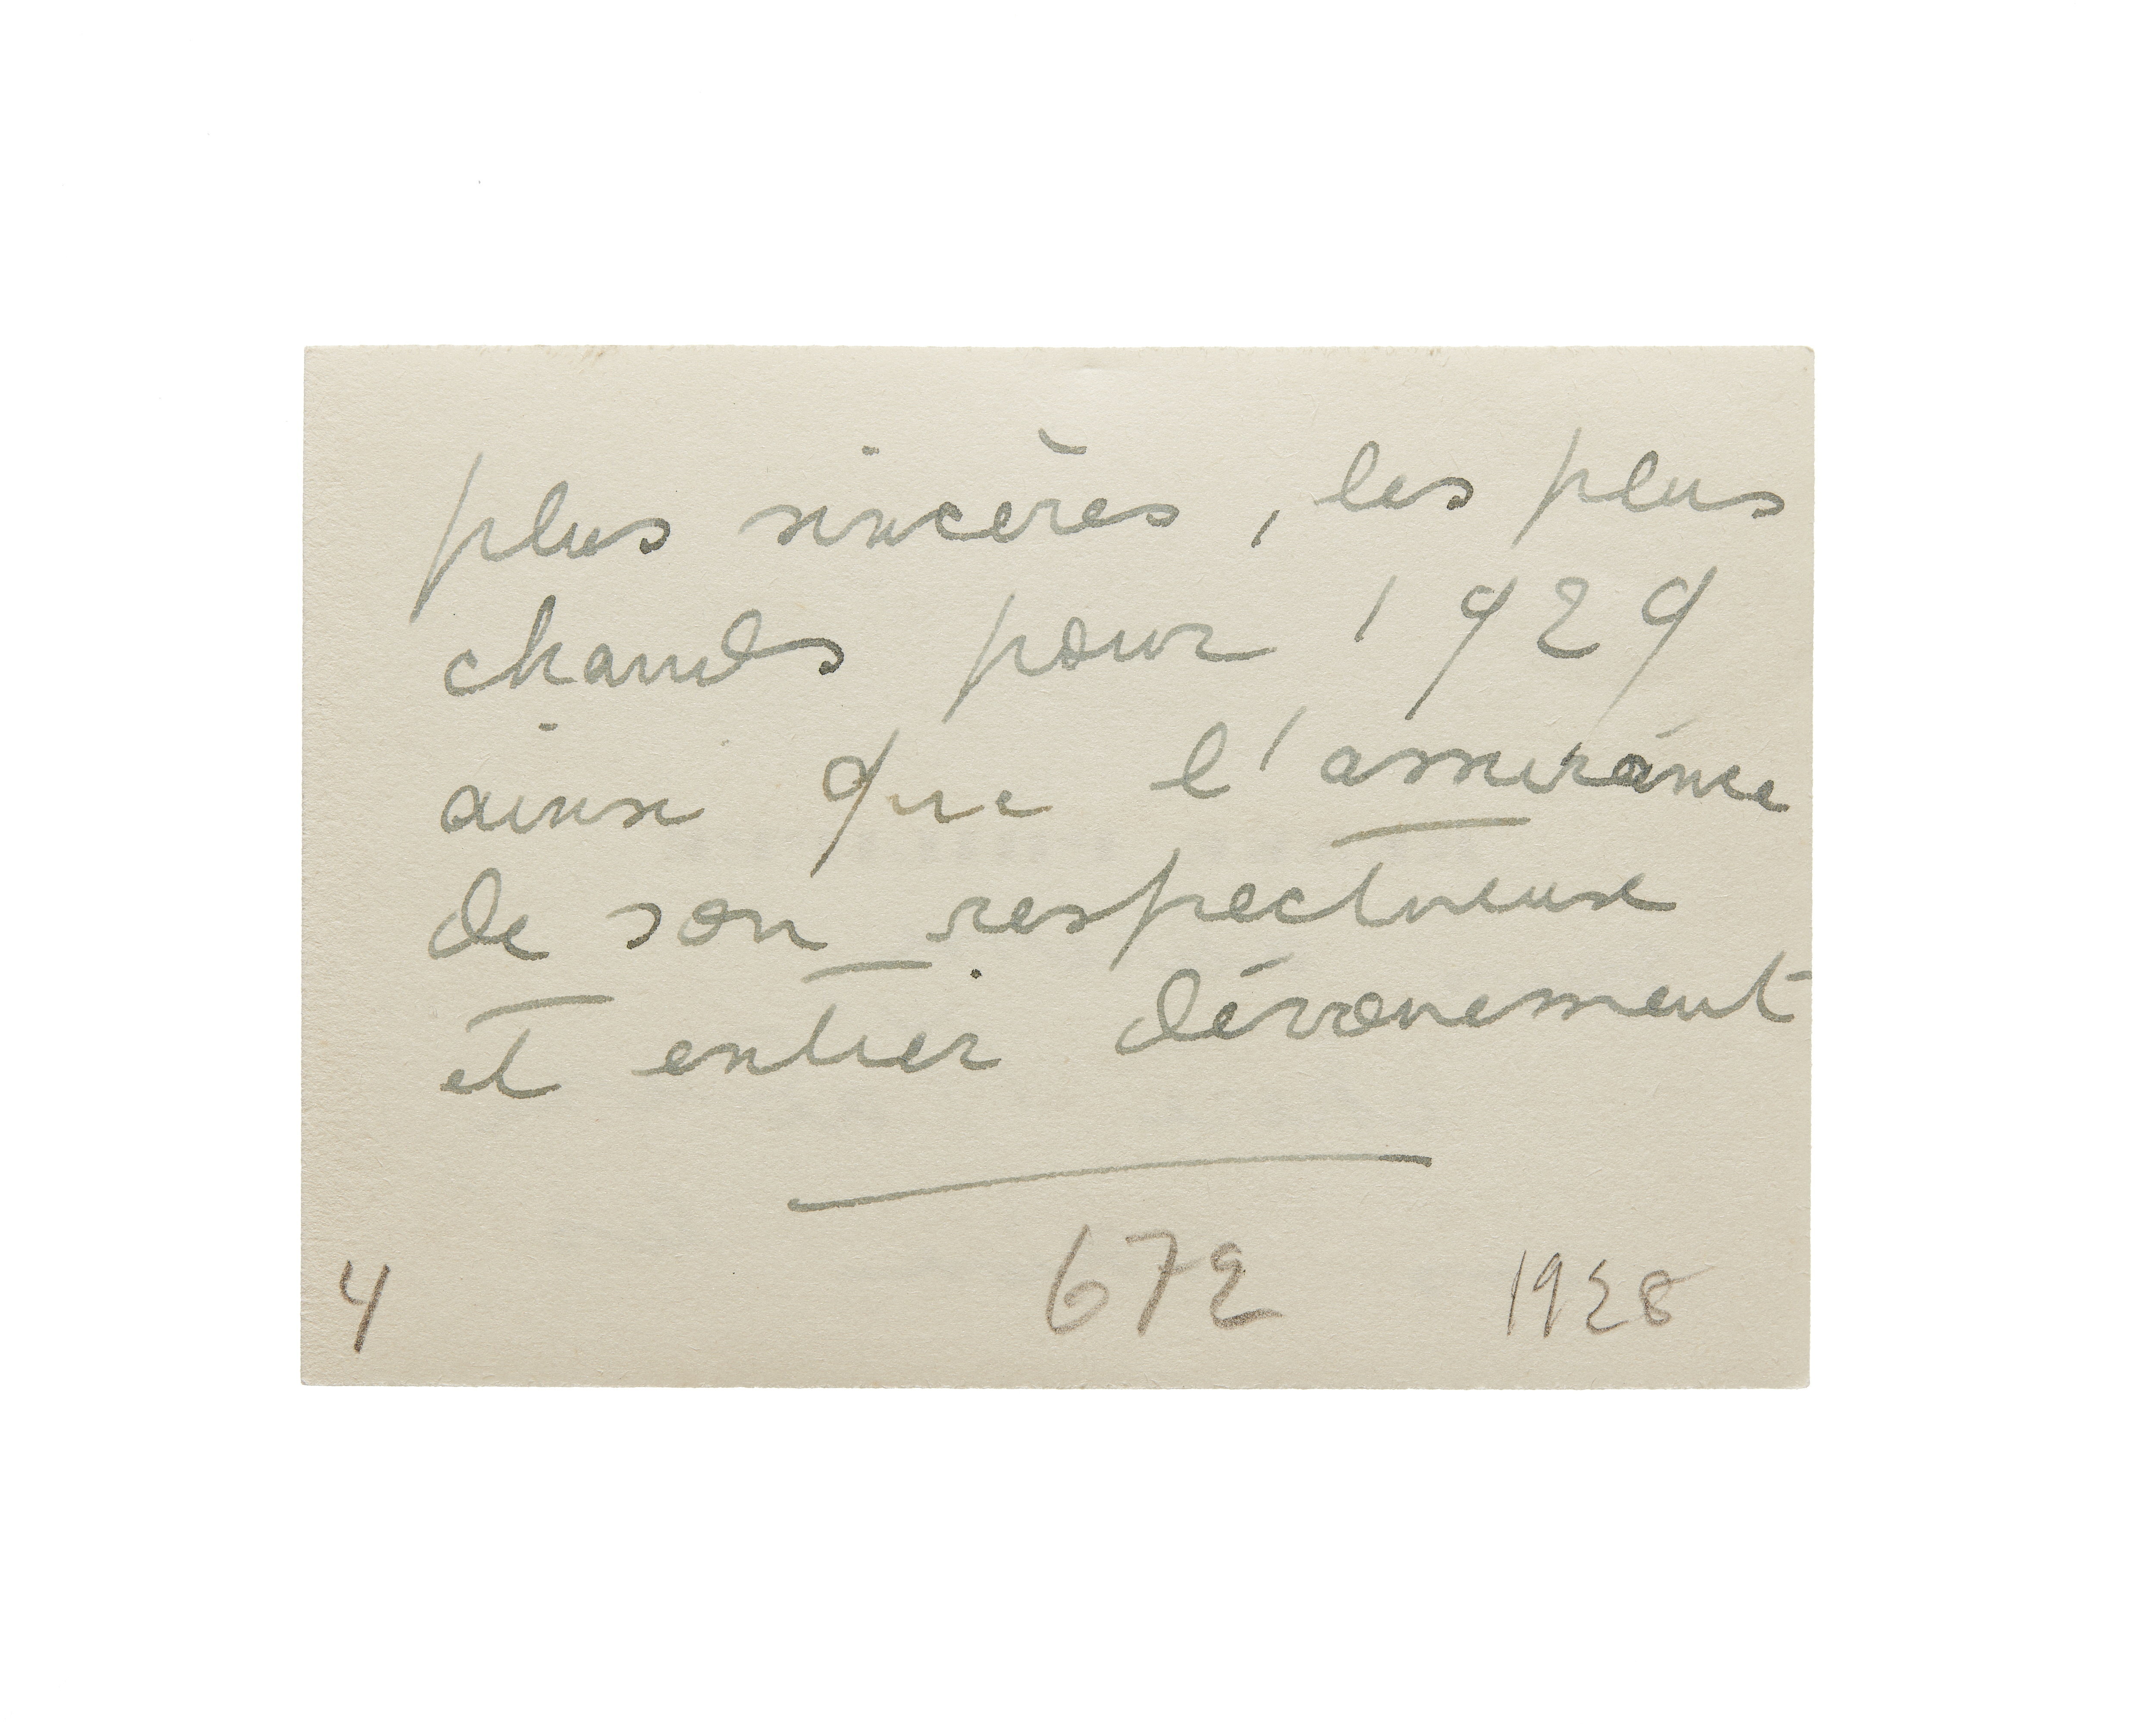 plus sincères, les plus
chauds pour 1929
ainsi que l'assurance
de son respectueux
et entier dévouement
4 672 1928